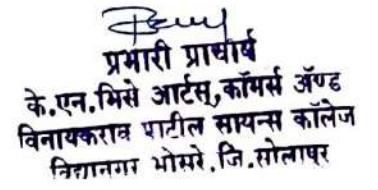 प्रभारी प्राचार्य
के.एन.भिसे आर्टस्,कॉमर्स ॲण्ड
विनायकराव पाटील सायन्स कॉलेज
विद्यानगर भोसरे.जि.सोलापूर